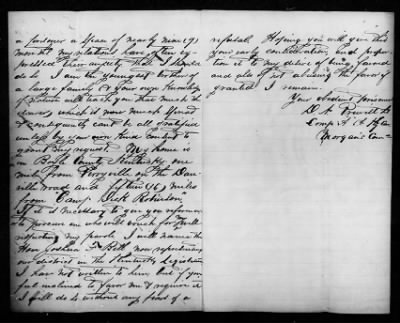 a prisoner a space of nearly nine (9)
months my relations have often ex-
pressed their anxiety that I should
do so I am the youngest brother of
a large family & your own knowledge
of nature will teach you that much the
dearer
Consequently can't be all gratified
unless by your own kind consent to
grant my request. My home is
in Boyle County Kentucky one
mile from Perryville on the Dan-
ville road and fifteen miles
from "Camp Dick Robinson"
If it is necessary to give you reference
to procure one who will vouch for
my people I will name the
Hon Joshua F Bell now representing
our district in the Kentucky Legislature
I have not written to him but if you
feel inclined to favor me & require it
I will do so without any fear of a
refusal Hoping you will give this
your early consideration and
it to my desire of being favored
and also of not abusing the favor if
granted I remain
Your obedient prisoner
D. A.
Comp A
Morgan's